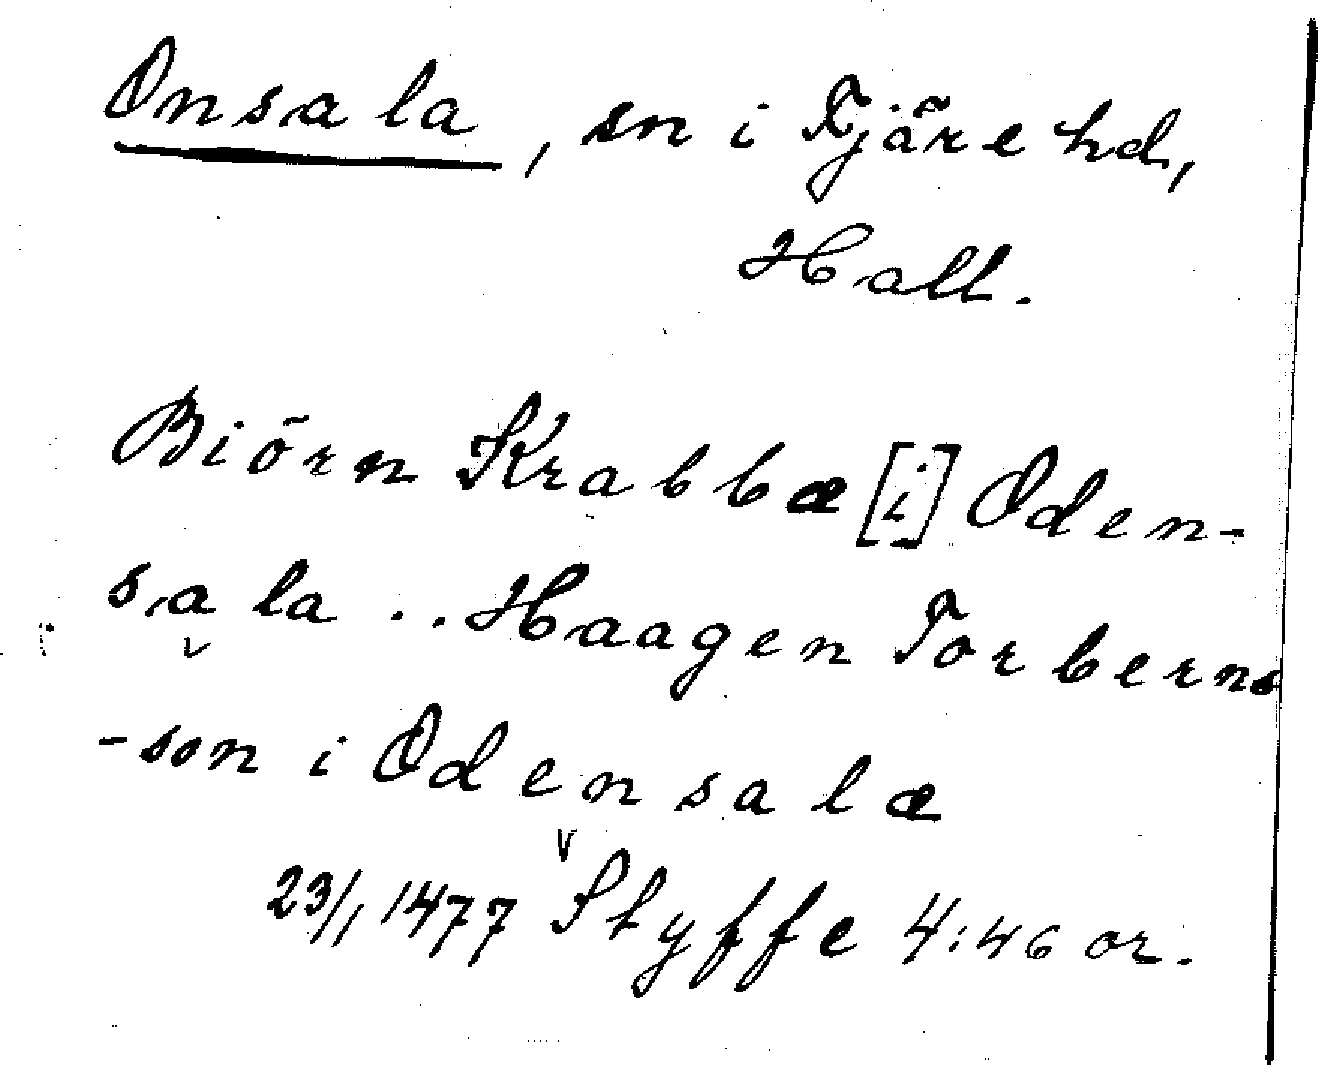 Onsala, sn i Fjäre hd,
Hall.
Biörn Krabbæ [i] Oden-
sala .. Haagen Torberns
-son i Odensalæ
23/1 1477 Styffe 4:46 or.